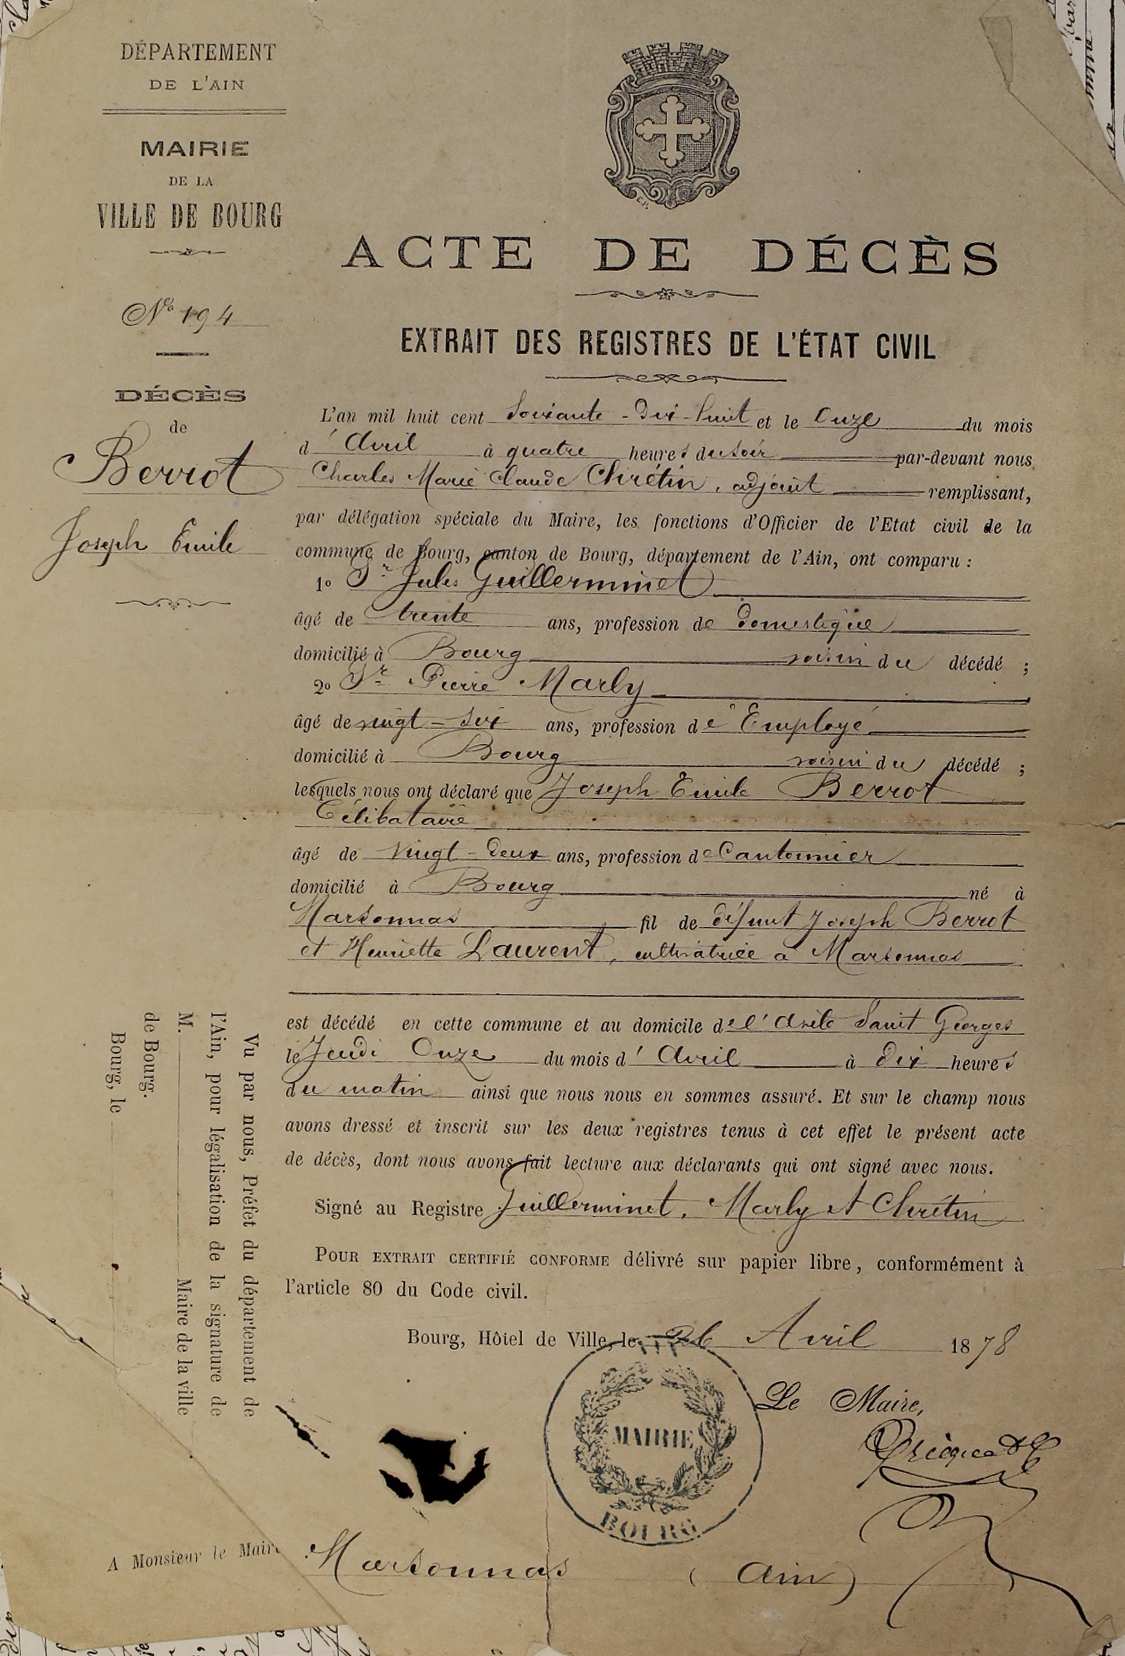 DÉPARTEMENT
DE L'AIN
MAIRIE
DE LA
VILLE DE BOURG
No 194
DÉCÈS
de
Berrot
Joseph Emile
ACTE DE DÉCÈS
EXTRAIT DES REGISTRES DE L'ÉTAT CIVIL
L'an mil huit cent Soixante-Dix-huit et le Onze du mois
d'Avril à quatre heures du soir par-devant nous
Charles Marie Claude Chrétin, adjoint remplissant,
par délégation spéciale du Maire, les fonctions d'Officier de l'Etat civil de la
commune de Bourg, canton de Bourg, département de l'Ain, ont comparu :
1o Sr Jules Guillerminet
âgé de trente ans, profession de domestique
domicilié à Bourg voisin du décédé ;
2o Sr Pierre Marly
âgé de vingt-six ans, profession d'Employé
domicilié à Bourg voisin du décédé ;
lesquels nous ont déclaré que Joseph Emile Berrot
Célibataire
âgé de vingt-deux ans, profession de Cantonnier
domicilié à Bourg né à
Marsonnas fil de défunt Joseph Berrot
et Henriette Laurent, cultivatrice à Marsonnas
est décédé en cette commune et au domicile de l'Asile Saint Georges
le Jeudi Onze du mois d'Avril à dix heures
du matin ainsi que nous nous en sommes assuré. Et sur le champ nous
avons dressé et inscrit sur les deux registres tenus à cet effet le présent acte
de décès, dont nous avons fait lecture aux déclarants qui ont signé avec nous.
Signé au Registre Guillerminet, Marly et Chrétin
POUR EXTRAIT CERTIFIÉ CONFORME délivré sur papier libre, conformément à
l'article 80 du Code civil.
Bourg, Hôtel de Ville, le 26 Avril 1878
Le Maire,
MAIRIE
BOURG
Vu par nous, Préfet du département de
l'Ain, pour légalisation de la signature de
M. Maire de la ville
de Bourg.
Bourg, le
A Monsieur le Maire
Marsonnas (Ain)